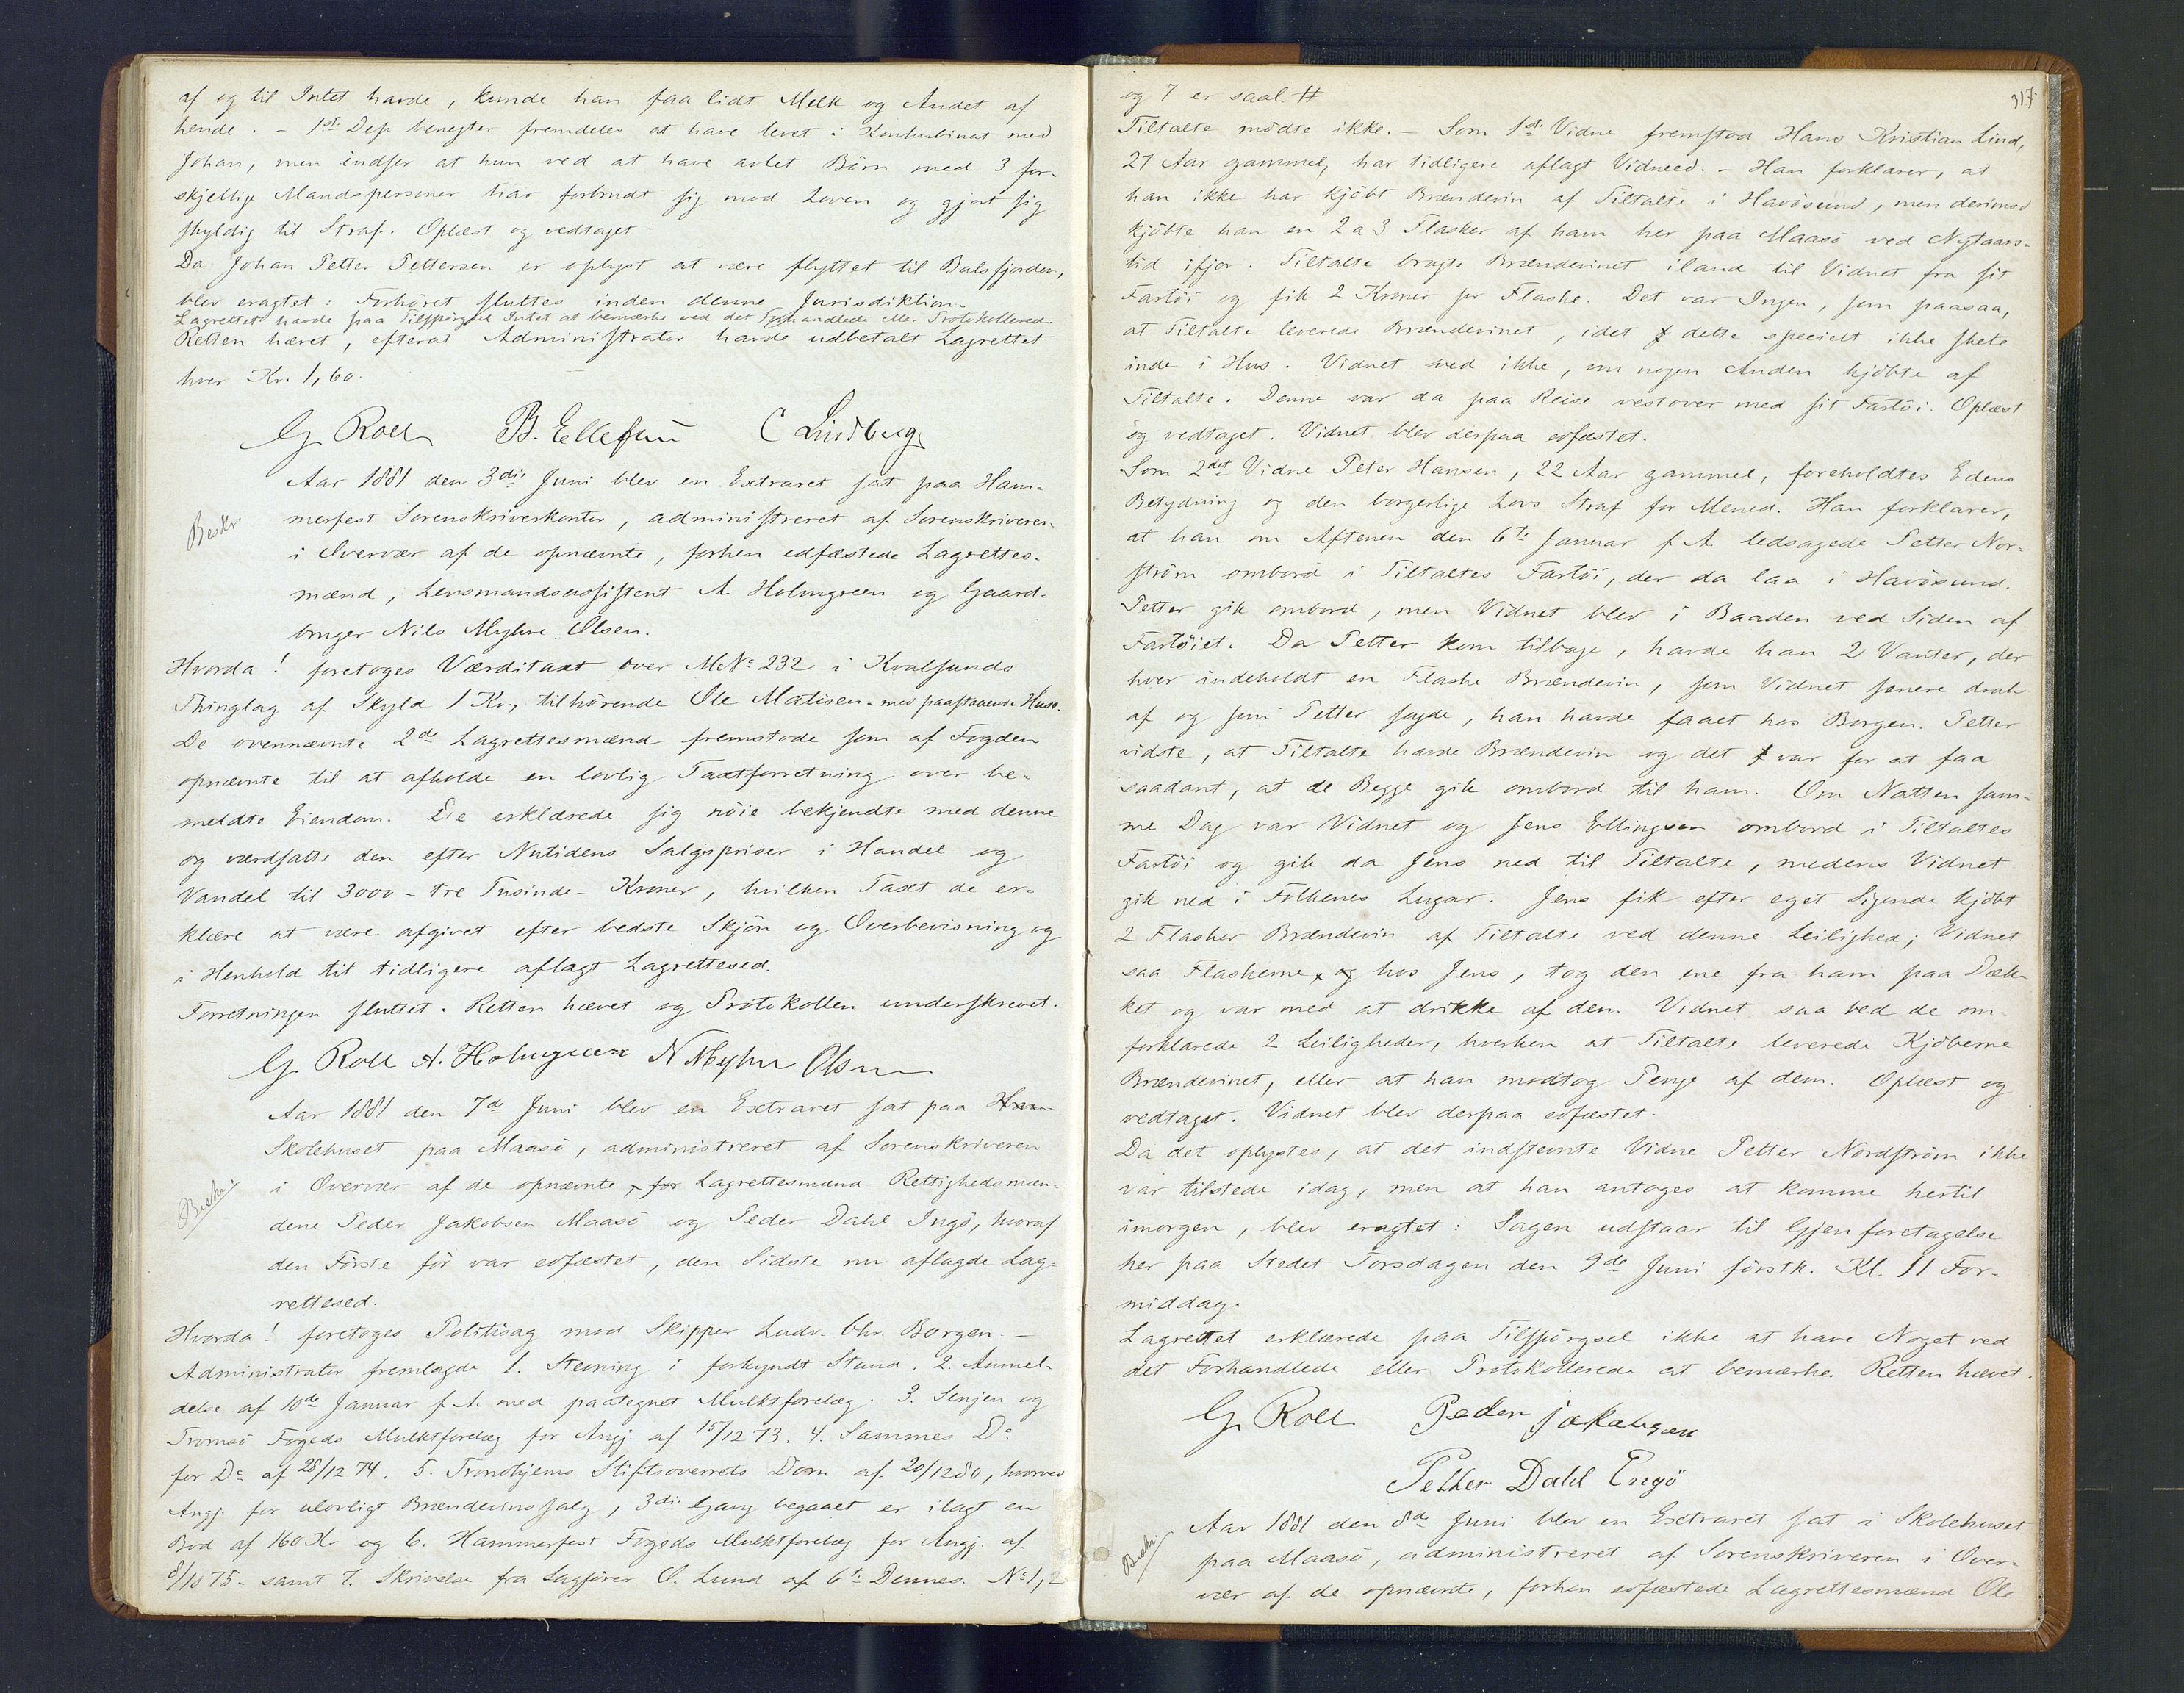 af og til Intet havde, kunde han faa lidt Melk og Andet af
hende. - 1ste Dep benegter fremdeles at have levet i Konkubinat med
Johan, men indser at hun ved at have avlet Børn med 3 for-
skjellige Mandspersoner har forbrudt sig mod Loven og gjort sig
skyldig til Straf. Oplæst og vedtaget.
Da Johan Petter Pettersen er oplyst at være flyttet til Balsfjorden,
blev eragtet: Forhøret sluttes inden denne Jurisdiktion.
Lagrettet havde paa Tilspørgsel Intet at bemærke ved det Forhandlede eller Protokollerede
Retten hævet, efterat Administrator havde udbetalt Lagrettet
hver Kr. 1,60.
G. Roll B. Ellefsen C Lindberg
Aar 1881 den 3die Juni blev en Extraret sat paa Ham-
Beskr.
merfest Sorenskriverkontor, administreret af Sorenskriveren
i Overvær af de opnævnte, forhen edfæstede Lagrettes-
mænd, Lensmandsassistent A Holmgreen og Gaard-
bruger Nils Myhre Olsen.
Hvorda! foretoges Værditaxt over MNo 232 i Kvalsunds
Thinglag af Skyld 1 Kr., tilhørende Ole Matisen - med paastaaende Huse.
De ovennævnte 2de Lagrettesmænd fremstode som af Fogden
opnævnte til at afholde en lovlig Taxtforretning over be-
meldte Eiendom. De erklærede sig nøie bekjendte med denne
og værdsatte den efter Nutidens Salgspriser i Handel og
Vandel til 3000 - tre Tusinde - Kroner, hvilken Taxt de er-
klære at være afgivet efter bedste Skjøn og Overbevisning og
i Henhold til tidligere aflagt Lagrettesed.
Forretningen sluttet. Retten hævet og Protokollen underskrevet.
G. Roll A. Holmgreen N Myhre Olsen
Aar 1881 den 7de Juni blev en Extraret sat paa Ham
Skolehuset paa Maasø, administreret af Sorenskriveren
Beskr.
i Overvær af de opnævnte, for Lagrettesmænd Rettighedsmæn-
dene Peder Jakobsen Maasø og Peder Dahl Ingø, hvoraf
den Første før var edfæstet, den Sidste nu aflagde Lag-
rettesed.
Hvorda! foretoges Politisag mod Skipper Ludv. Chr. Borgen. -
Administrator fremlagde 1. Stevning i forkyndt Stand. 2. Anmel-
delse af 10de Januar f. A. med paategnet Mulktforelæg. 3. Senjen og
Tromsø Fogeds Mulktforelæg for Angj. af 15/12 73. 4. Sammes Do
for Do af 28/12 74. 5. Trondhjems Stiftsoverrets Dom af 20/12 80, hvorved
Angj. for ulovligt Brændevinssalg, 3die Gang begaaet er ilagt en
Bod af 160 Kr og 6. Hammerfest Fogeds Mulktforelæg for Angj. af
8/10 75 - samt 7. Skrivelse fra Sagfører O. Lund af 6te Dennes. No 1, 2
317.
og 7 er saal. #
Tiltalte mødte ikke. - Som 1ste Vidne fremstod Hans Kristian Lind,
27 Aar gammel, har tidligere aflagt Vidneed. - Han forklarer, at
han ikke har kjøbt Brændevin af Tiltalte i Havøsund, men derimod
kjøbte han en 2 a 3 Flasker af ham her paa Maasø ved Nytaars-
tid ifjor. Tiltalte bragte Brændevinet iland til Vidnet fra sit
Fartøi og fik 2 Kroner pr Flaske. Det var Ingen, som paasaa,
at Tiltalte leverede Brændevinet, idet dette specielt ikke skete
inde i Hus. Vidnet ved ikke, om nogen Anden kjøbte af
Tiltalte. Denne var da paa Reise vestover med sit Fartøi. Oplæst
og vedtaget. Vidnet blev derpaa edfæstet.
Som 2det Vidne Peter Hansen, 22 Aar gammel, foreholdtes Edens
Betydning og den borgerlige Lovs Straf for Mened. Han forklarer,
at han om Aftenen den 6te Januar f A ledsagede Petter Nor-
strøm ombord i Tiltaltes Fartøi, der da laa i Havøsund.
Petter gik ombord, men Vidnet blev i Baaden ved Siden af
Fartøiet. Da Petter kom tilbage, havde han 2 Vanter, der
hver indeholdt en Flaske Brændevin, som Vidnet senere drak
af og som Petter sagde, han havde faaet hos Borgen. Petter
vidste, at Tiltalte havde Brændevin og det var for at faa
saadant, at de Begge gik ombord til ham. Om Natten sam-
me Dag var Vidnet og Jens Ellingsen ombord i Tiltaltes
Fartøi og gik da Jens ned til Tiltalte, medens Vidnet
gik ned i Folkenes Lugar. Jens fik efter eget Sigende kjøbt
2 Flasker Brændevin af Tiltalte ved denne Leilighed; Vidnet
saa Flaskerne, og hos Jens, tog den ene fra ham paa Dæk-
ket og var med at drikke af den. Vidnet saa ved de om-
forklarede 2 Leiligheder, hverken at Tiltalte leverede Kjøberne
Brændevinet, eller at han modtog Penge af dem. Oplæst og
vedtaget. Vidnet blev derpaa edfæstet.
Da det oplystes, at det indstevnte Vidne Petter Nordstrøm ikke
var tilstede idag, men at han antoges at komme hertil
imorgen, blev eragtet: Sagen udstaar til Gjenforetagelse
her paa Stedet Torsdagen den 9de Juni førstk. Kl. 11 For-
middag.
Lagrettet erklærede paa Tilspørgsel ikke at have Noget ved
det Forhandlede eller Protokollerede at bemærke. Retten hævet.
G. Roll Peder jakobsen
Petter Dahl Engö
Aar 1881 den 8de Juni blev en Extraret sat i Skolehuset
Beskr.
paa Maasø, administreret af Sorenskriveren i Over-
vær af de opnævnte, forhen edfæstede Lagrettesmænd Ole